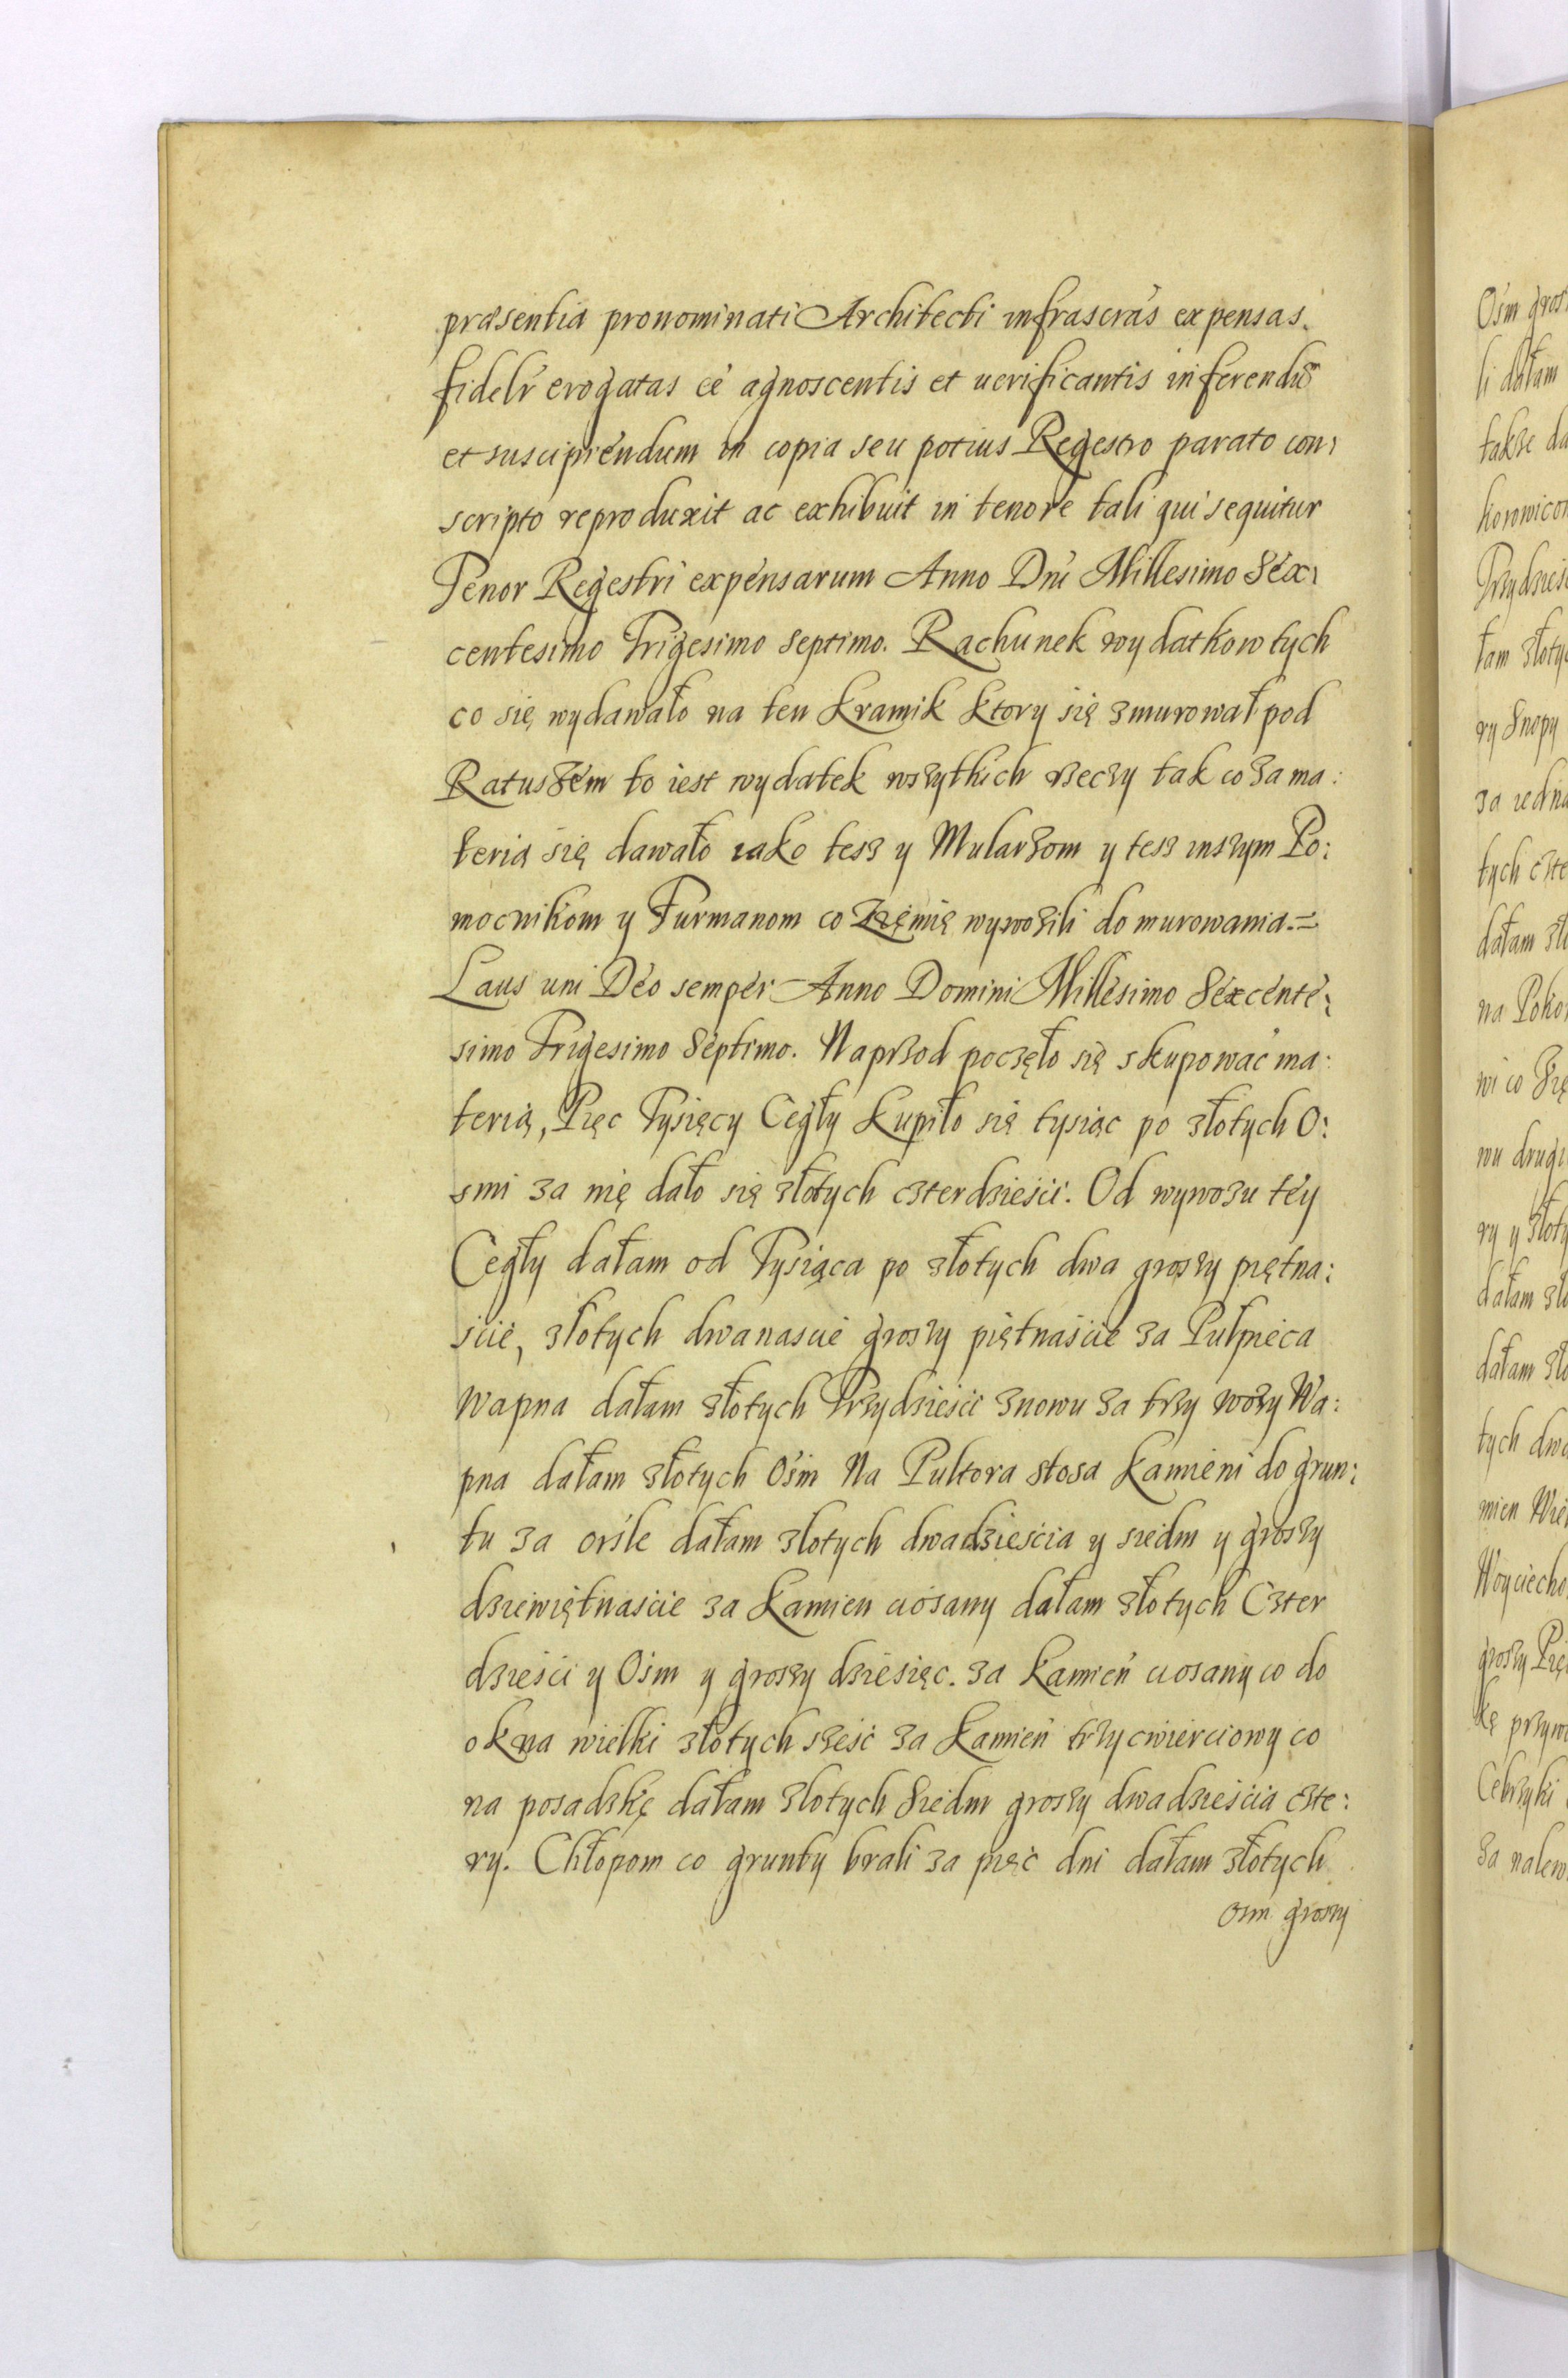 præsentia pronominati Architecti infrascrás expensas.
fidelr erogatas eé agnoscentis et uerificantis inferendũ
et suscipiendum in copia seu potius Regestro parato con:
scripto reproduxit ac exhibuit in tenore tali qui sequitur
Tenor Regestri expensarum Anno Dni Millesimo Sex:
centesimo Trigesimo Septimo. Rachunek wydatkow tych
co się wydawało na ten Kramik Ktory się zmurował pod
Ratuszem to iest wydatek wszytkich rzeczy tak co za ma:
terią się dawało iako tesz y Mularzom y tesz inszym Po:
mocnikom y Furmanom co Zięmię wywozili do murowania.=
Laus uni Deo semper Anno Domini Millesimo Sexcente:
simo Trigesimo Septimo. Naprzod poczęło się skupować ma:
terią, Pięc Tysięcy Cegły Kupiło się tysiąc po złotych O:
smi za nię dało się złotych czterdzieści. Od wywozu téy
Cegły dałam od Tysiąca po złotych dwa groszy piętna:
ście, złotych dwanascie groszy piętnaście za Pułpieca
Wapna dałam złotych Trzydzieści znowu za trzy wozy Wa:
pna dałam złotych Ośm Na Pultora stosa Kamieni do grun:
tu za orśle dałam złotych dwadzieścia y siedm y groszy
dziewiętnaście za Kamien ciosany dałam złotych Czter
dzieści y Ośm y groszy dziesięc. za Kamień ciosany co do
okna wielki złotych sześć za Kamień trzycwierciowy co
na posadzkę dałam złotych Siedm groszy dwadzieścia czte:
ry. Chłopom co grunty brali za pięć dni dałam złotych
osm groszy
Ośm gros
li dałam
także da
Trzydzieś
łam złoty
ry Snopy
za iedna
tych czte
dałam zło
wu drugi
ry y złoty
dałam zło
dałam zło
tych dwa
mien Wie
Woyciecho
groszy Pię
kę przywo
Cebrzyki
Za nalew